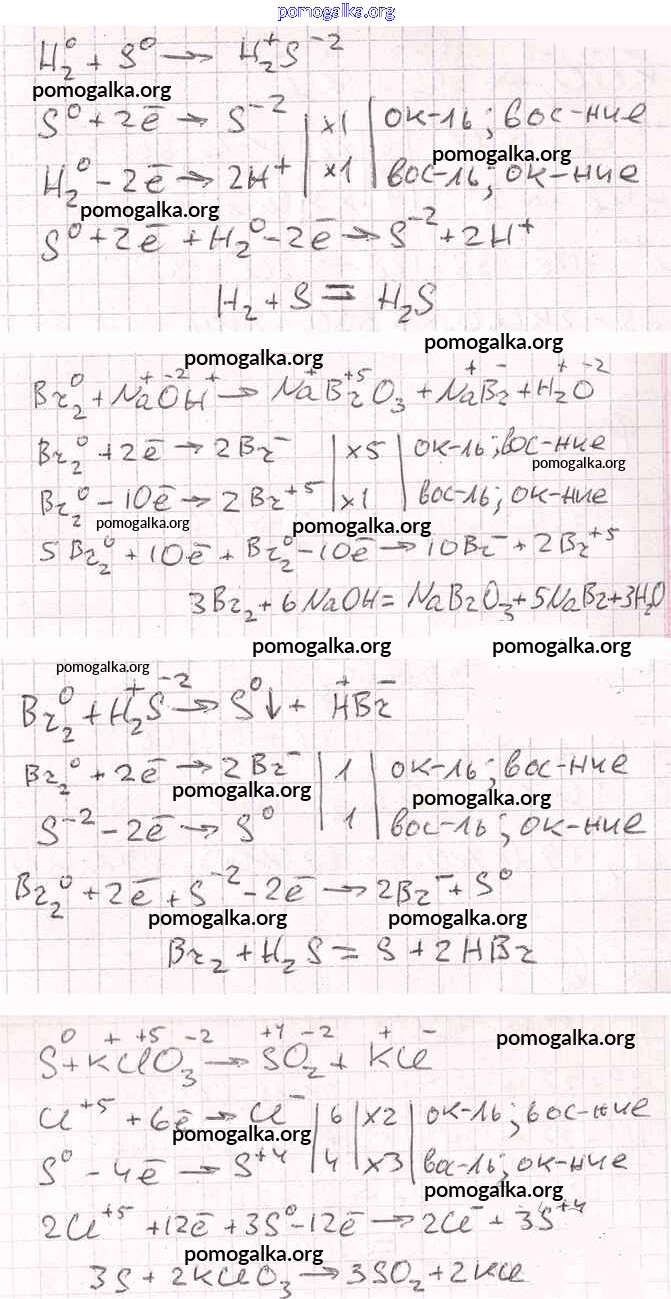 pomogalka.org
H₂⁰ + S⁰ → H₂⁺S⁻²
pomogalka.org
S⁰ + 2ē → S⁻² | ×1 | ок-ль; вос-ние
pomogalka.org
H₂⁰ - 2ē → 2H⁺ | ×1 | вос-ль; ок-ние
pomogalka.org
S⁰ + 2ē + H₂⁰ - 2ē → S⁻² + 2H⁺
H₂ + S = H₂S
pomogalka.org
pomogalka.org
Br₂⁰ + Na⁺O⁻²H⁺ → Na⁺Br⁺⁵O₃ + Na⁺Br⁻ + H₂⁺O⁻²
Br₂⁰ + 2ē → 2Br⁻ | ×5 | ок-ль; вос-ние
pomogalka.org
Br₂⁰ - 10ē → 2Br⁺⁵ | ×1 | вос-ль; ок-ние
pomogalka.org pomogalka.org
5Br₂⁰ + 10ē + Br₂⁰ - 10ē → 10Br⁻ + 2Br⁺⁵
3Br₂ + 6NaOH = NaBrO₃ + 5NaBr + 3H₂O
pomogalka.org pomogalka.org
pomogalka.org
Br₂⁰ + H₂⁺S⁻² → S⁰↓ + H⁺Br⁻
Br₂⁰ + 2ē → 2Br⁻ | 1 | ок-ль; вос-ние
pomogalka.org pomogalka.org
S⁻² - 2ē → S⁰ | 1 | вос-ль; ок-ние
Br₂⁰ + 2ē + S⁻² - 2ē → 2Br⁻ + S⁰
pomogalka.org pomogalka.org
Br₂ + H₂S = S + 2HBr
pomogalka.org
S⁰ + K⁺Cl⁺⁵O₃⁻² → S⁺⁴O₂⁻² + K⁺Cl⁻
Cl⁺⁵ + 6ē → Cl⁻ | 6 | ×2 | ок-ль; вос-ние
pomogalka.org
S⁰ - 4ē → S⁺⁴ | 4 | ×3 | вос-ль; ок-ние
pomogalka.org
2Cl⁺⁵ + 12ē + 3S⁰ - 12ē → 2Cl⁻ + 3S⁺⁴
pomogalka.org
3S + 2KClO₃ → 3SO₂ + 2KCl